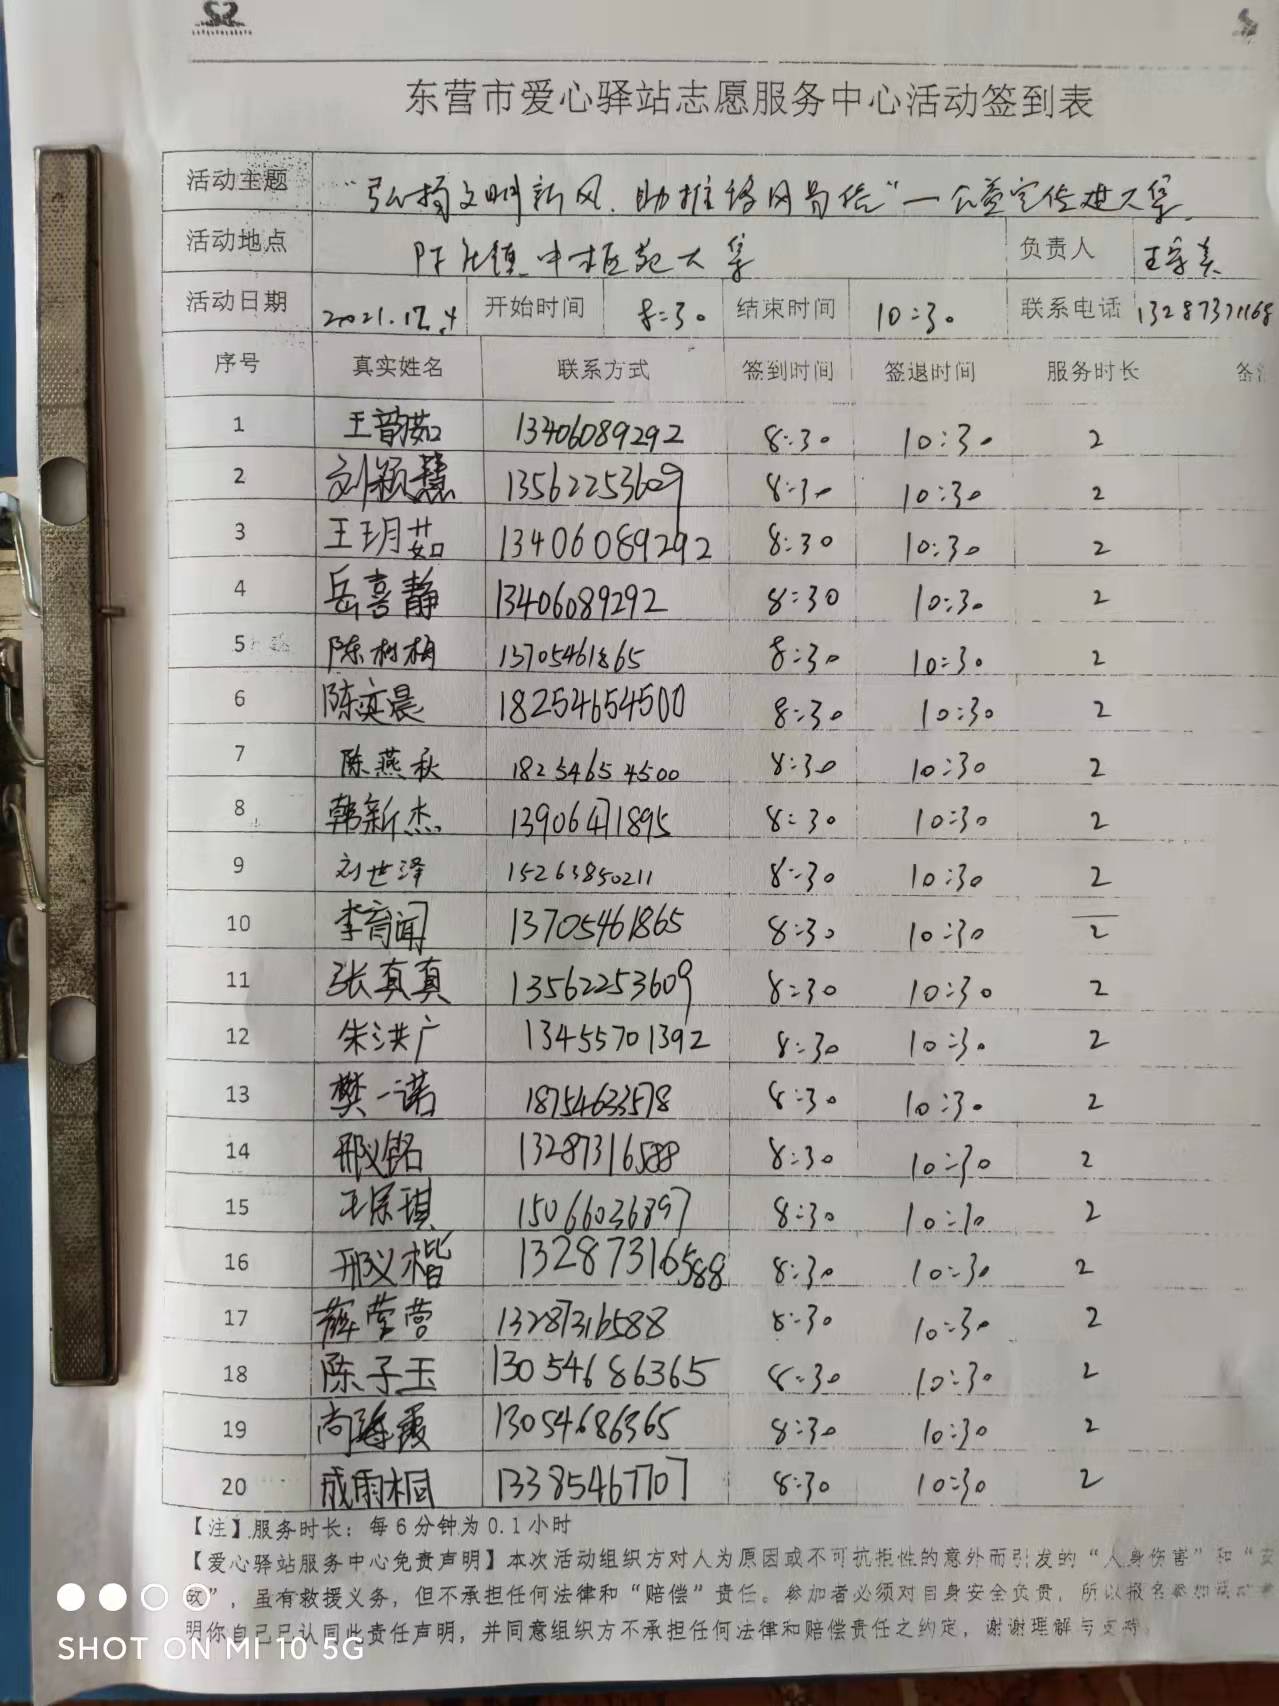 东营市爱心驿站志愿服务中心活动签到表
活动主题 "弘扬文明新风、助推移风易俗"—公益宣传进大集
活动地点 陈庄镇中枢苑大集 负责人 王学美
活动日期 2021.12.4 开始时间 8:30 结束时间 10:30 联系电话 13287371168
序号 真实姓名 联系方式 签到时间 签退时间 服务时长
1 王韵茹 13406089292 8:30 10:30 2
2 刘颖慧 13562253609 8:30 10:30 2
3 王玥茹 13406089292 8:30 10:30 2
4 岳喜静 13406089292 8:30 10:30 2
5 陈树梅 13705461865 8:30 10:30 2
6 陈奕晨 18254654500 8:30 10:30 2
7 陈燕秋 18254654500 8:30 10:30 2
8 韩新杰 13906471895 8:30 10:30 2
9 刘世泽 15263850211 8:30 10:30 2
10 李育闻 13705461865 8:30 10:30 2
11 张真真 13562253609 8:30 10:30 2
12 朱洪广 13455701392 8:30 10:30 2
13 樊一诺 18754633578 8:30 10:30 2
14 邢义铭 13287316588 8:30 10:30 2
15 王琪 15066036897 8:30 10:30 2
16 邢义楷 13287316588 8:30 10:30 2
17 薛莹莹 13287316588 8:30 10:30 2
18 陈子玉 13054686365 8:30 10:30 2
19 尚霞 13054686365 8:30 10:30 2
20 成雨桐 13385467707 8:30 10:30 2
【注】服务时长：每6分钟为0.1小时
【爱心驿站服务中心免责声明】本次活动组织方对人为原因或不可抗拒性的意外而引发的"人身伤害"和"
"，虽有救援义务，但不承担任何法律和"赔偿"责任。参加者必须对自身安全负责，所以报名参加
明你自己已认同此责任声明，并同意组织方不承担任何法律和赔偿责任之约定，谢谢理解与支持。
SHOT ON MI 10 5G